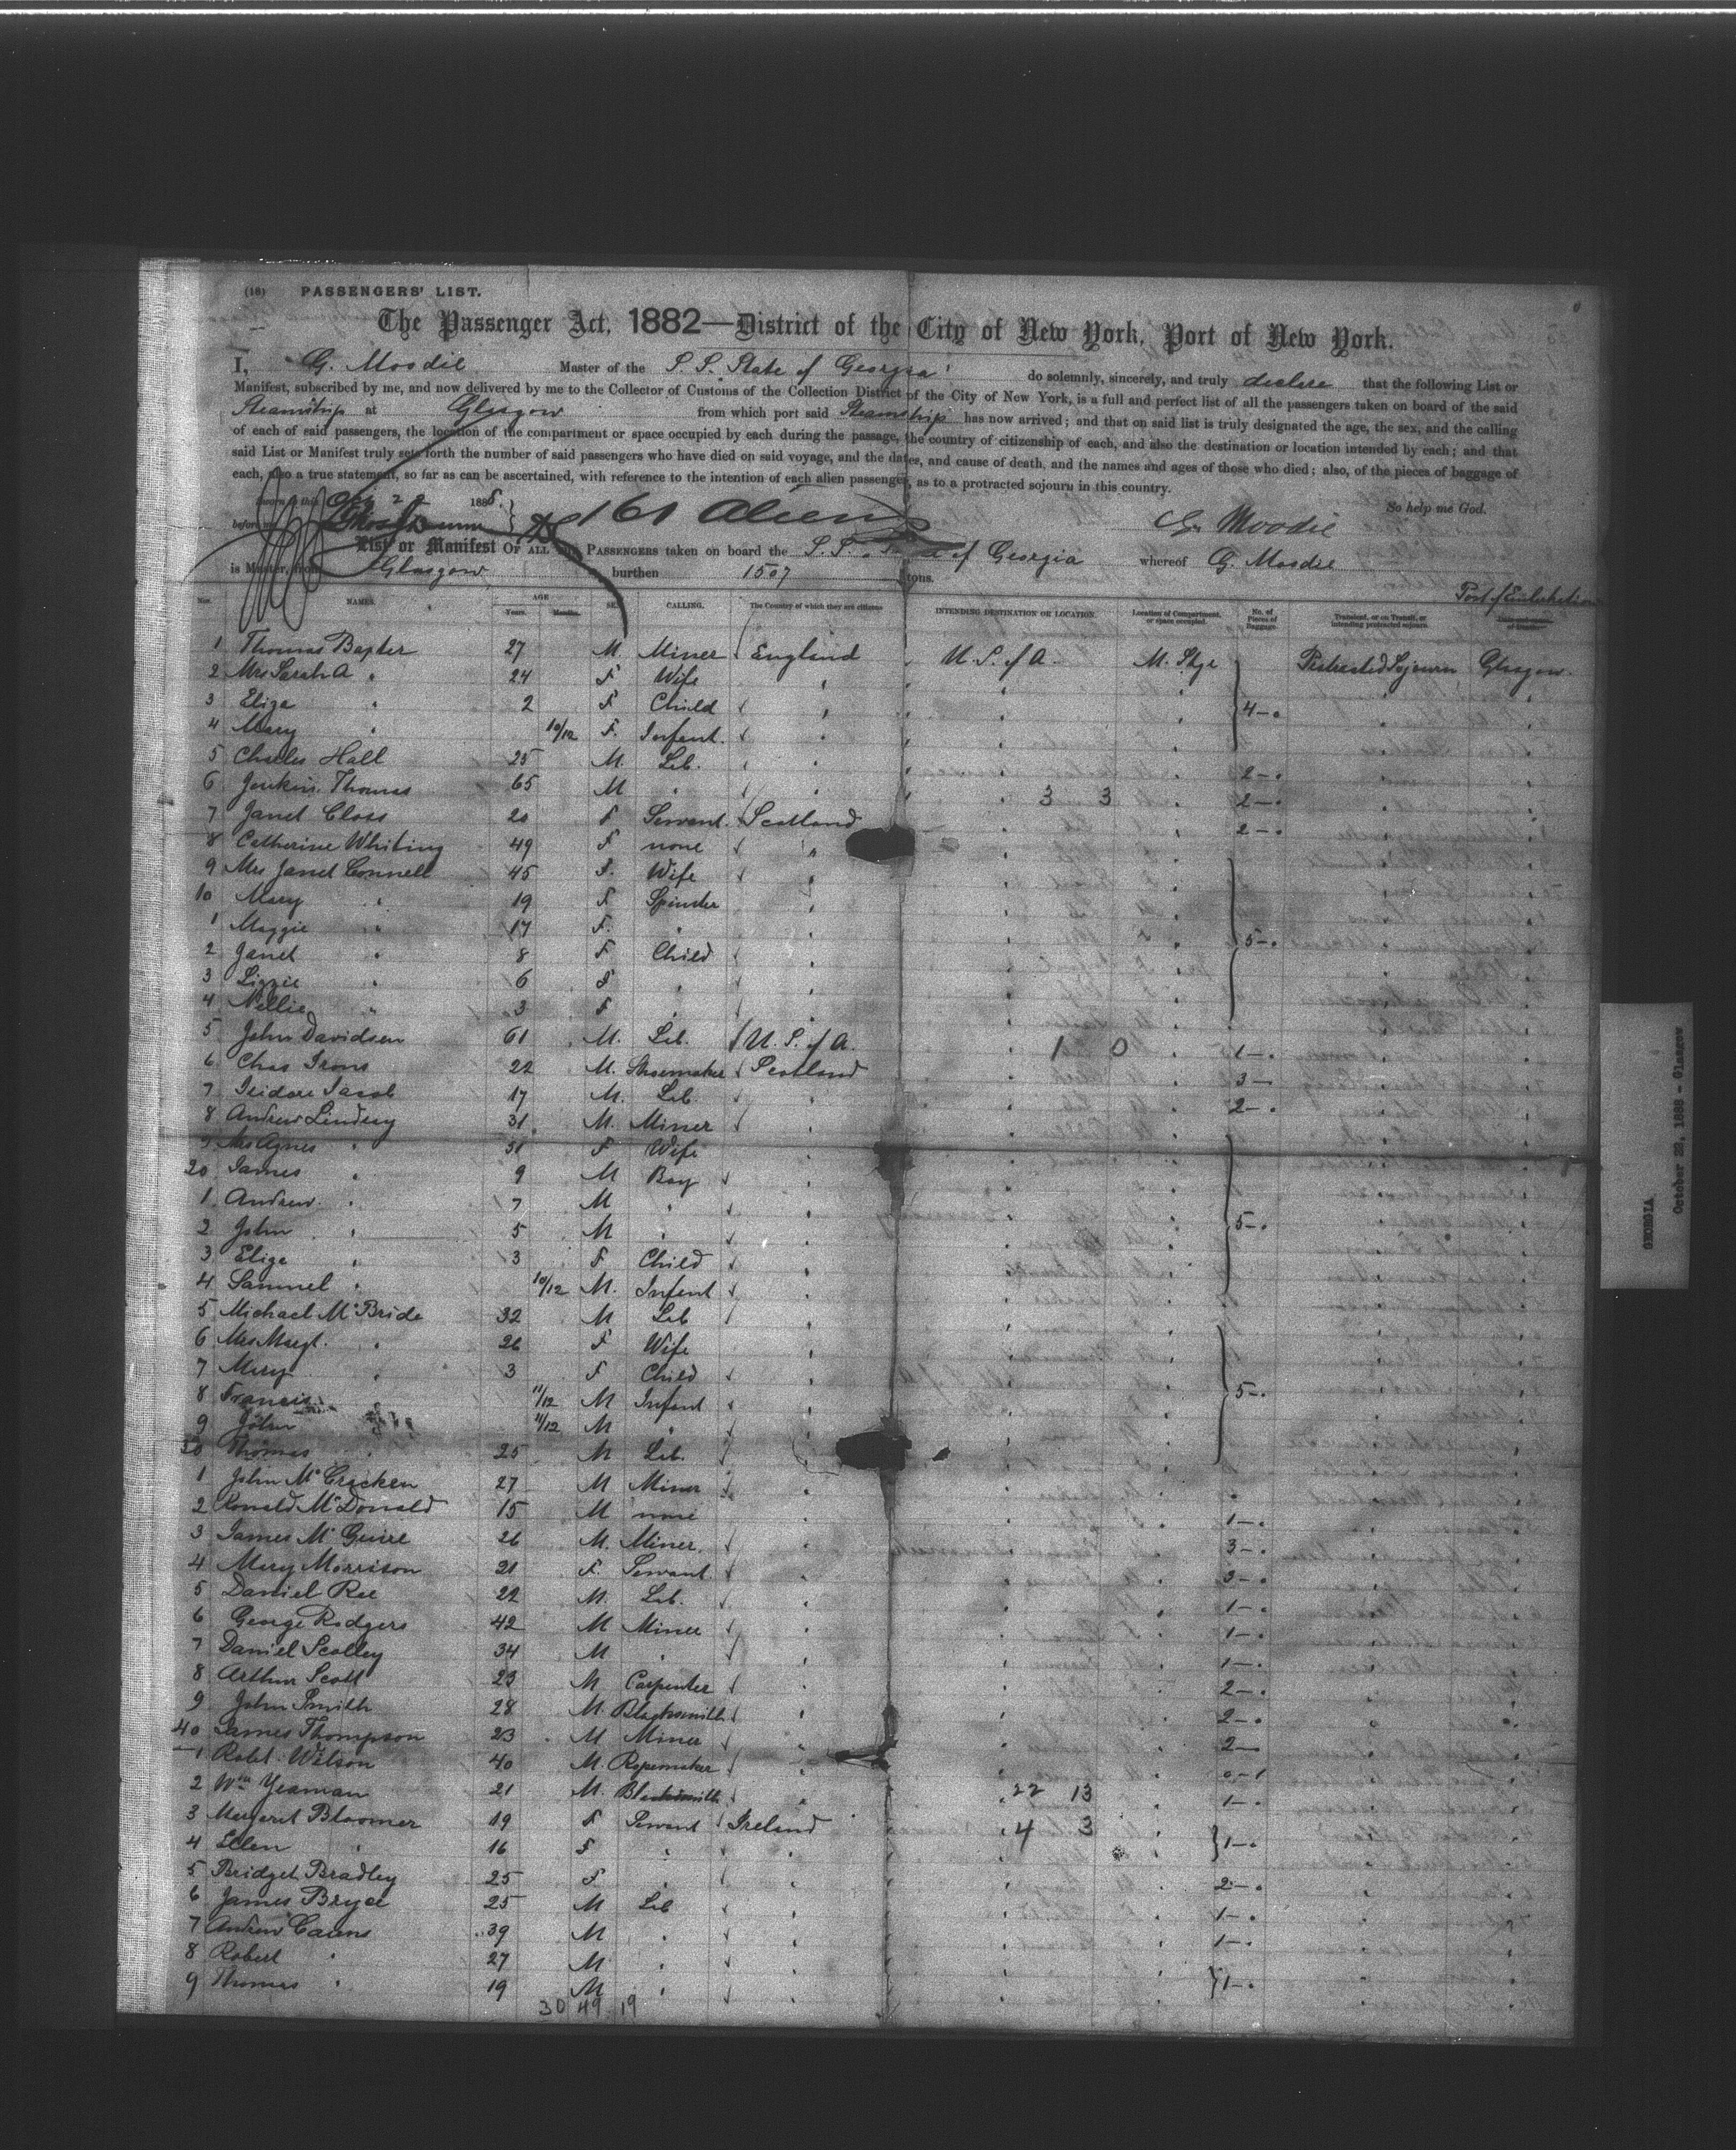 (16) PASSENGERS' LIST.
The Passenger Act, 1882—District of the City of New York, Port of New York.
I, G. Moodie Master of the S.S. State of Georgia do solemnly, sincerely, and truly declare that the following List or
Manifest, subscribed by me, and now delivered by me to the Collector of Customs of the Collection District of the City of New York, is a full and perfect list of all the passengers taken on board of the said
Steamship at Glasgow from which port said Steamship has now arrived; and that on said list is truly designated the age, the sex, and the calling
of each of said passengers, the location of the compartment or space occupied by each during the passage, the country of citizenship of each, and also the destination or location intended by each; and that
said List or Manifest truly sets forth the number of said passengers who have died on said voyage, and the dates, and cause of death, and the names and ages of those who died; also, of the pieces of baggage of
each, also a true statement, so far as can be ascertained, with reference to the intention of each alien passenger, as to a protracted sojourn in this country.
Sworn to this Oct 22 188 So help me God.
before me 161 Aliens G. Moodie
List or Manifest OF ALL THE PASSENGERS taken on board the S.S. State of Georgia whereof G. Moodie
is Master, from Glasgow burthen 1507 tons.
Port of Embarkation
Nos. NAMES. AGE Years. Months. SEX. CALLING. The Country of which they are citizens INTENDING DESTINATION OR LOCATION. Location of Compartment, or space occupied. No. of Pieces of Baggage. Transient, or on Transit, or intending protracted sojourn.
1 Thomas Baxter 27 M. Miner England U.S. of A. M. Stge Protracted Sojourn Glasgow
2 Mrs Sarah A " 24 F Wife "
3 Eliza " 2 F Child " 4
4 Mary " 10/12 F. Infant. "
5 Charles Hall 25 M. Lab. " 2
6 Jenkin Thomas 65 M " " 3 3 2
7 Janet Class 20 F Servant. Scotland 2
8 Catherine Whiting 49 F none "
9 Mrs Janet Connell 45 F. Wife "
10 Mary " 19 F Spinster "
1 Maggie " 17 F. " "
2 Janet " 8 F Child " 5
3 Lizzie " 6 F " "
4 Nellie " 3 F " "
5 John Davidson 61 M. Lab. U.S. of A. 1 0 1
6 Chas Irons 22 M. Shoemaker Scotland 3
7 Isidore Jacob 17 M. Lab. " 2
8 Andrew Lindsay 31 M. Miner "
9 Mrs Agnes " 31 F Wife "
20 James " 9 M Boy "
1 Andrew " 7 M " "
2 John " 5 M " " 5
3 Eliza " 3 F Child "
4 Samuel " 10/12 M. Infant "
5 Michael McBride 32 M Lab "
6 Mrs Margt. " 26 F Wife "
7 Mary " 3 F Child "
8 Francis 11/12 M Infant " 5
9 John 11/12 M " "
30 Thomas " 25 M Lab. "
1 John McCracken 27 M Miner "
2 Ronald McDonald 15 M none " 1
3 James McGuire 26 M. Miner. " 3
4 Mary Morrison 21 F. Servant. " 3
5 Daniel Rae 22 M. Lab. " 1
6 George Rodgers 42 M Miner " 1
7 Daniel Scolley 34 M " " 1
8 Arthur Scott 23 M Carpenter " 2
9 John Smith 28 M. Blacksmith " 2
40 James Thompson 23 M Miner " 2
1 Robt. Wilson 40 M. Ropemaker "
2 Wm Yeaman 21 M. Blacksmith " 22 13 1
3 Margaret Bloomer 19 F Servant Ireland 4 3
4 Ellen " 16 F " " 1
5 Bridget Bradley 25 F " " 2
6 James Bryce 25 M Lab " 1
7 Andrew Cairns 39 M " " 1
8 Robert " 27 M " "
9 Thomas " 19 M " " 1
30 49 19
GEORGIA
October 22, 1888 - Glasgow